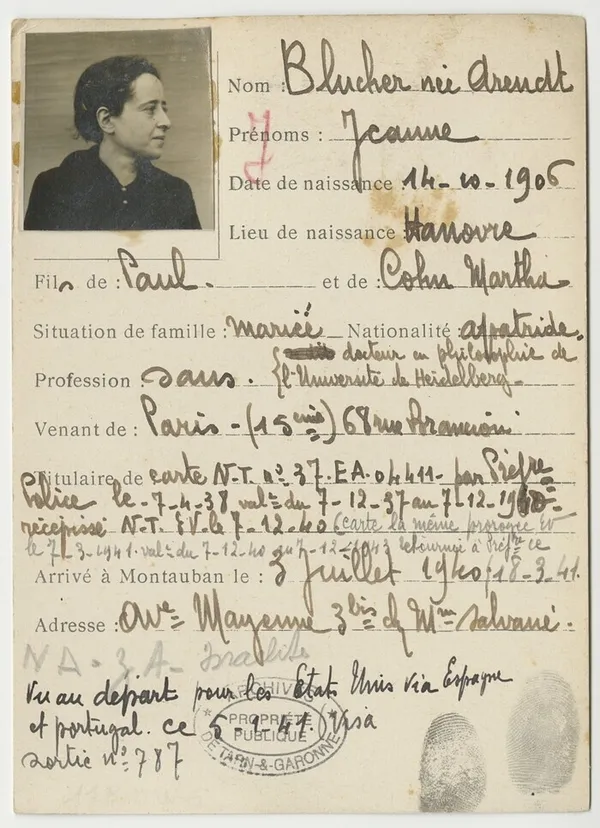 Nom : Blucher née Arendt
J
Prénoms : Jeanne
Date de naissance : 14-10-1906
Lieu de naissance : Hanovre
Fil de : Paul. et de : Cohn Martha
Situation de famille : mariée Nationalité : apatride.
docteur en philosophie de
Profession : sans. l'Université de Heidelberg
Venant de : Paris - (15eme) 68 rue
Titulaire de carte N.T. n° 37.EA.04411 - par Préfre
Police le 7-4-38 val= du 7-12-37 au 7-12-19
récépissé N.T. EV. le 7-12-40 (carte la même prorogée EV
le 7-3-1941. val= du 7-12-40 au 7-12-1943 retourné à Préfre ce
Arrivé à Montauban le : 3 Juillet 1940 18-3-41.
Adresse : Ave Mayenne 3bis ch Mm Salvané.
N A - 3 A - Israelite
Vu au départ pour les Etats Unis via Espagne
et portugal. ce 5 1.41. Visa
sortie n° 787
ARCHIVES
PROPRIÉTÉ
PUBLIQUE
DE TARN-&-GARONNE